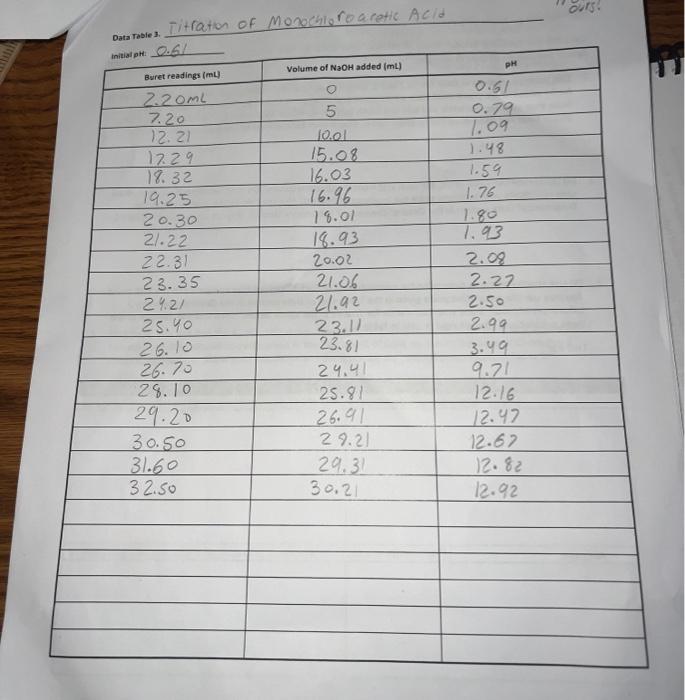 Ours!
Data Table 3. Titration of Monochloroacetic Acid
Initial pH: 0.61
Buret readings (mL) Volume of NaOH added (mL) pH
2.20mL 0 0.61
7.20 5 0.79
12.21 10.01 1.09
17.29 15.08 1.48
18.32 16.03 1.59
19.25 16.96 1.76
20.30 18.01 1.80
21.22 18.93 1.93
22.31 20.02 2.08
23.35 21.06 2.27
24.21 21.92 2.50
25.40 23.11 2.99
26.10 23.81 3.49
26.70 24.41 9.71
28.10 25.81 12.16
29.20 26.91 12.47
30.50 28.21 12.67
31.60 29.31 12.82
32.50 30.21 12.92